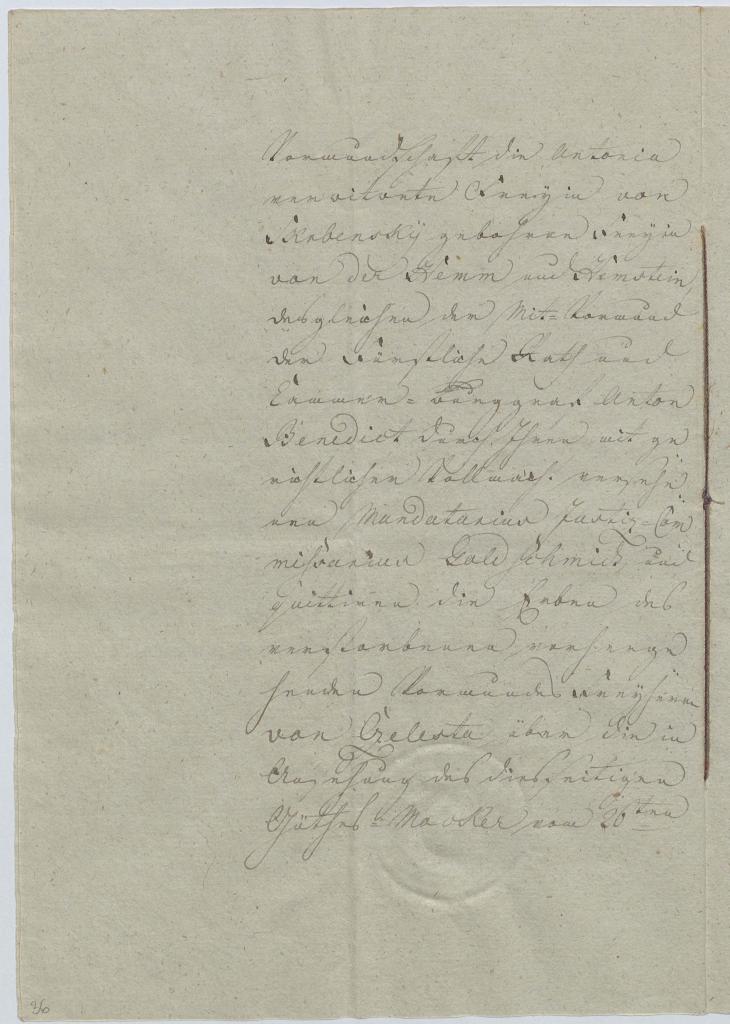 Vormundschaft die Antonia
verwitwete Freyin von
Skrbenskÿ gebohrne Freyin
von der Hemm und Hemstein,
desgleichen der Mit=Vormund
der Fürstliche Rath und
Cammer=Burggraf Anton
Benedict durch Ihren mit ge
richtlicher Vollmacht versehe
nen Mandatarius Justiz=Com
missarius Goldschmidt und
quittiren die Erben des
verstorbenen vorherge
henden Vormundes Freyherrn
von Celesta über die in
Ansehung des diesseitigen
Guthes Marker vom 26ten